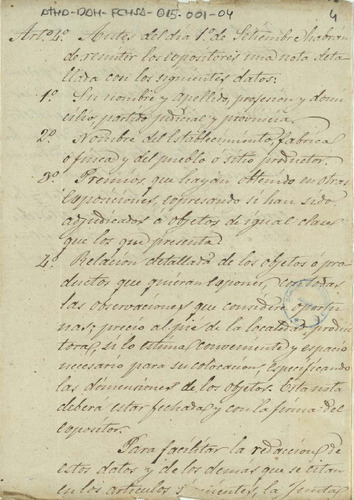 ATHA-DAH-FCHSA-015-001-04
4
Artº. 4º. Antes del dia 1º. de Setiembre habran
de remitir los espositores una nota deta
llada con los siguientes datos:
1º. Su nombre y apellido, profesion y domi
cilio, partido judicial y provincia.
2º. Nombre del Establecimiento, fabrica
ó finca y del pueblo ó sitio productor.
3º. Premios, que hayan obtenido en otras
Esposiciones, espresando si han sido
adjudicados á objetos de igual clase
que los que presenta.
4º. Relacion detallada de los objetos ó pro
ductos que quieran esponer, con todas
las observaciones que considere oportu
nas; precio al pie de la localidad produc
tora, si lo estima conveniente y espacio
necesario para su colocacion, especificando
las dimensiones de los objetos. Esta nota
deberá estar fechada y con la firma del
espositor.
Para facilitar la redaccion de
estos datos y de los demas que se citan
en los articulos siguientes, la Junta